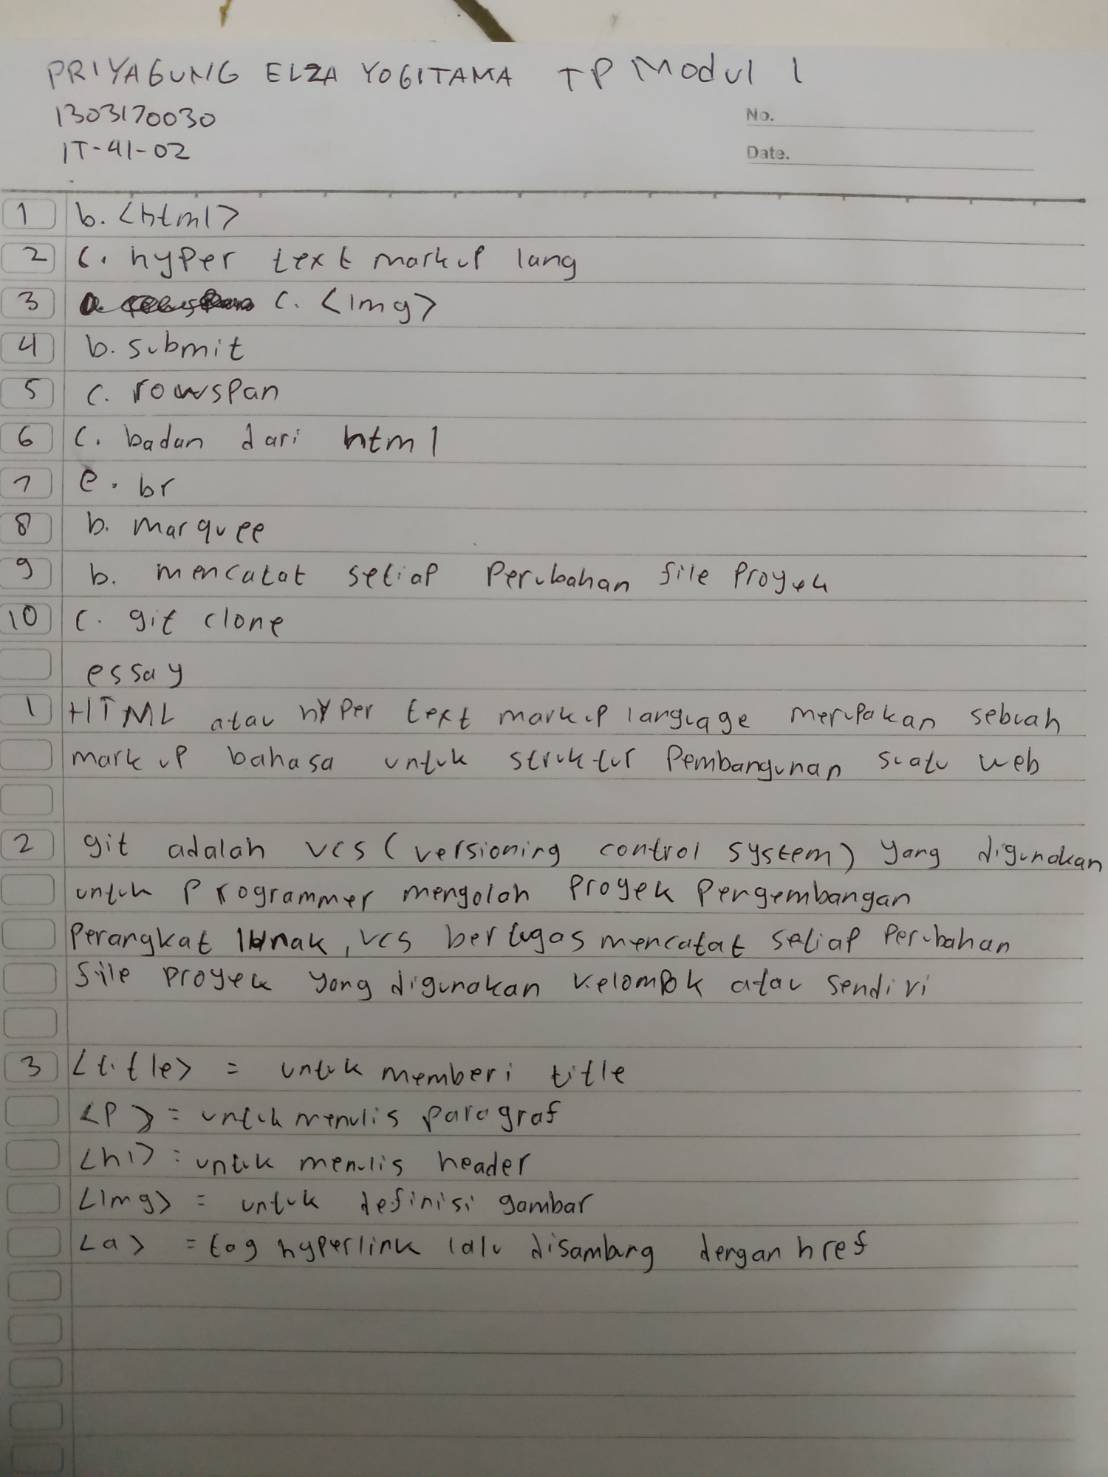 PRIYAGUNG ELZA YOGITAMA TP Modul 1
1303170030
IT-41-02
No.
Date.
1 b. <html>
2 C. hyper text markup lang
3 C. <img>
4 b. submit
5 C. rowspan
6 C. badan dari html
7 e. br
8 b. marquee
9 b. mencatat setiap perubahan file proyek
10 C. git clone
essay
1 HTML atau hyper text markup language merupakan sebuah
markup bahasa untuk struktur pembangunan suatu web
2 git adalah vcs (versioning control system) yang digunakan
untuk programmer mengolah proyek pengembangan
perangkat lunak, vcs bertugas mencatat setiap perubahan
file proyek yang digunakan kelompok atau sendiri
3 <title> = untuk memberi title
<p> = untuk menulis paragraf
<h1> = untuk menulis header
<img> = untuk definisi gambar
<a> = tag hyperlink lalu disambung dengan href